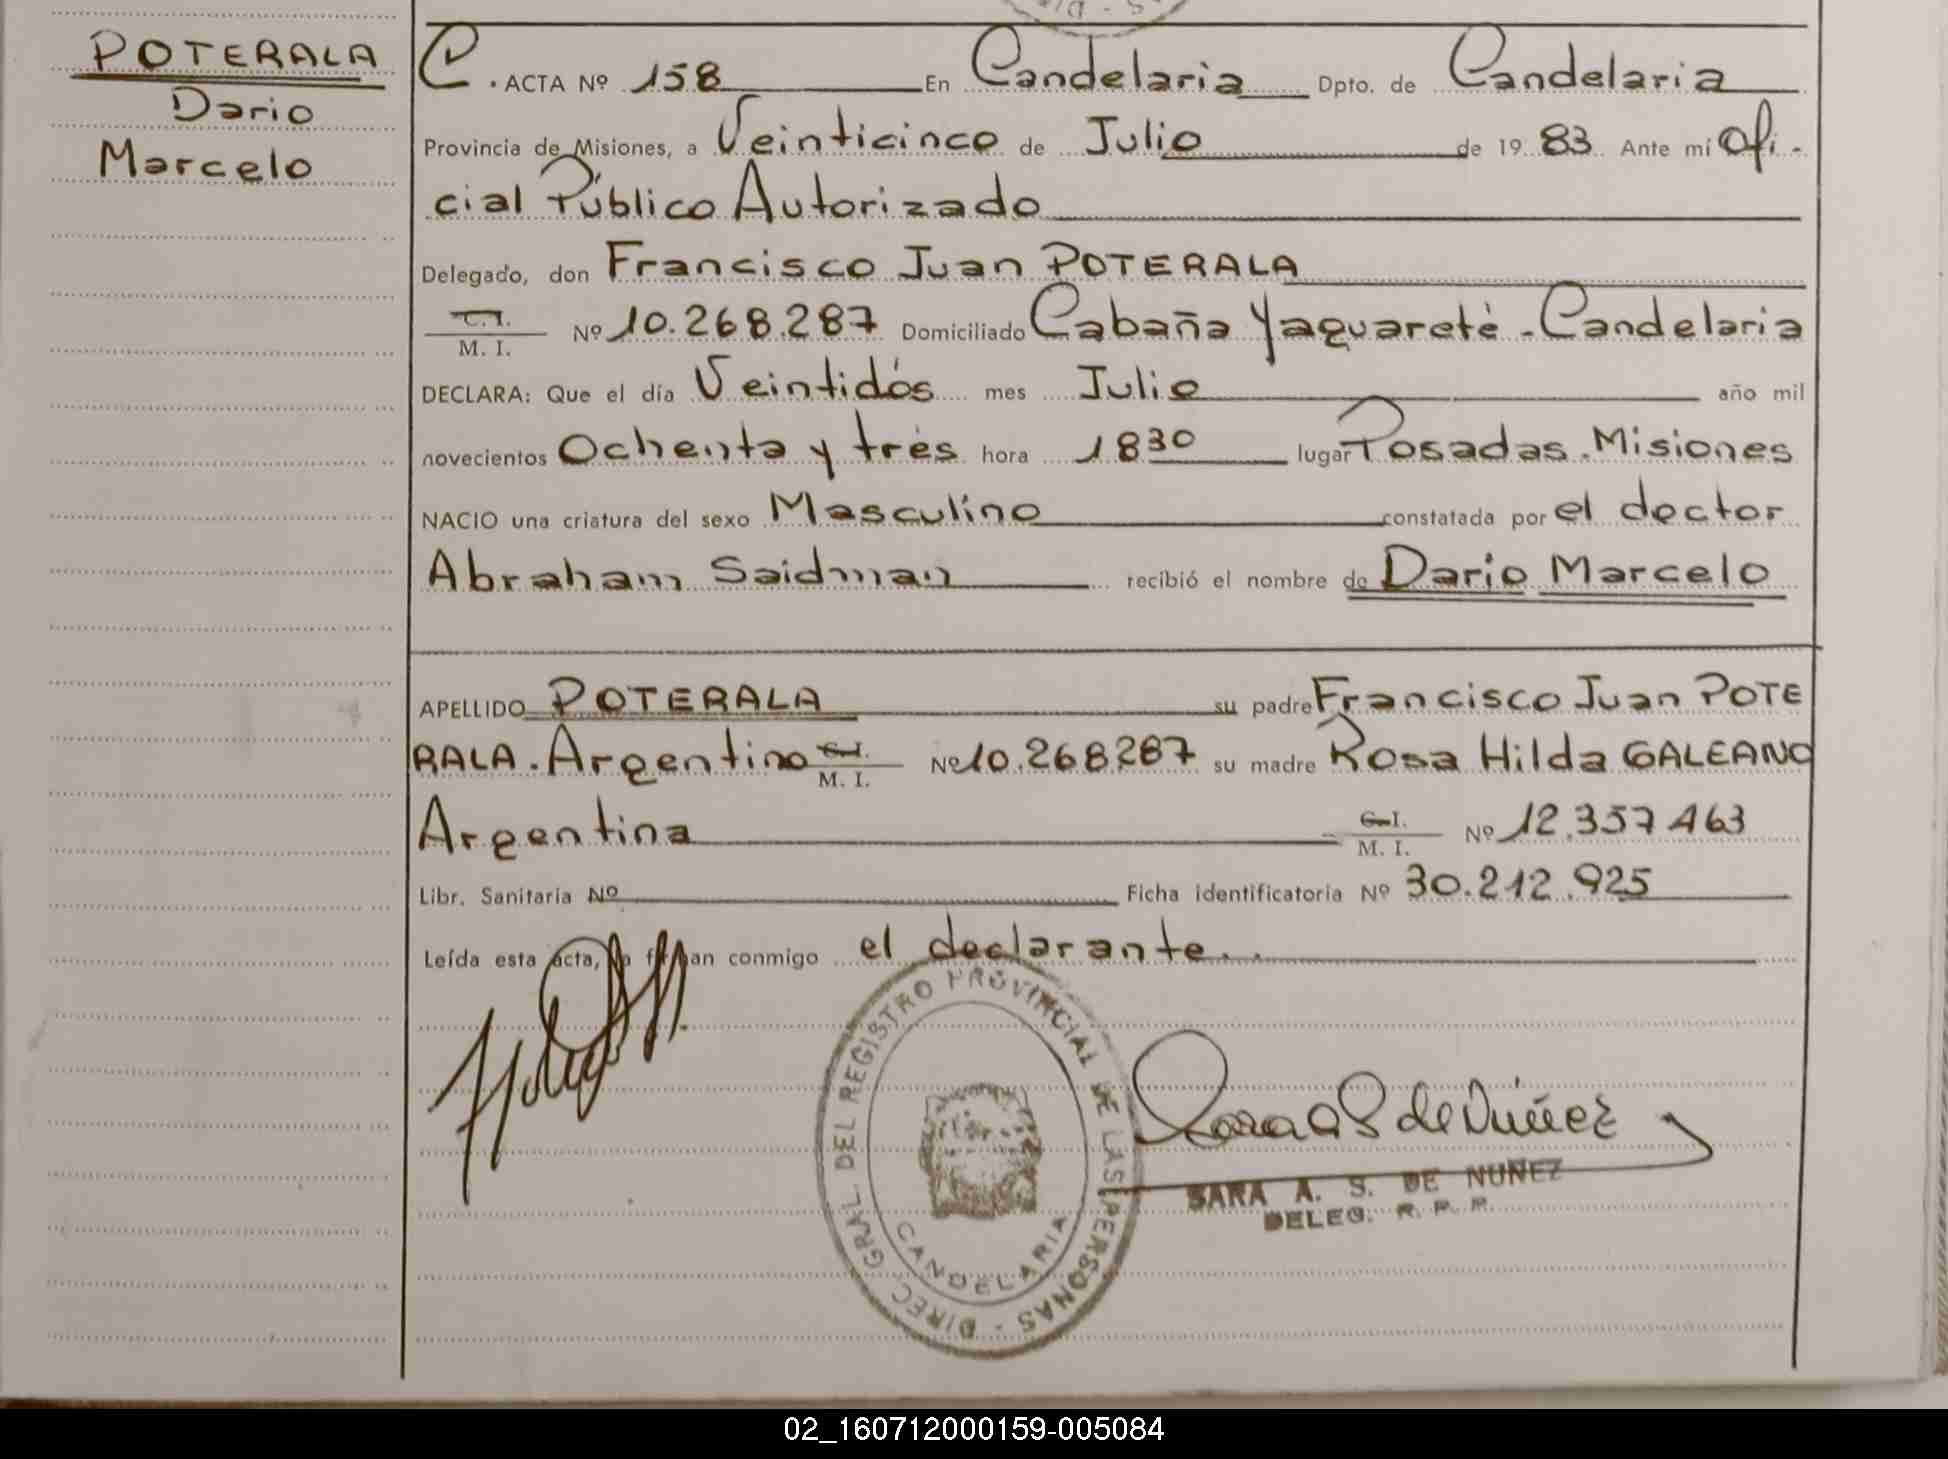 POTERALA
Dario
Marcelo
C. ACTA Nº 158 En Candelaria Dpto. de Candelaria
Provincia de Misiones, a Veinticinco de Julio de 1983 Ante mi Ofi-
cial Público Autorizado
Delegado, don Francisco Juan POTERALA
C.I.
M. I. Nº 10.268.287 Domiciliado Cabaña Yaguareté - Candelaria
DECLARA: Que el día Veintidós mes Julio año mil
novecientos Ochenta y tres hora 1830 lugar Posadas. Misiones
NACIO una criatura del sexo Masculino constatada por el doctor
Abraham Saidman recibió el nombre de Dario Marcelo
APELLIDO POTERALA su padre Francisco Juan POTE
RALA. Argentino C.I.
M. I. Nº 10.268287 su madre Rosa Hilda GALEANO
Argentina C.I.
M. I. Nº 12.357 463
Libr. Sanitaria Nº Ficha identificatoria Nº 30.212.925
Leída esta acta, conmigo el declarante..
DIREC GRAL. DEL REGISTRO PROVINCIAL DE LAS PERSONAS -
CANDELARIA
Sara A S de Núñez
SARA A. S. DE NUÑEZ
DELEG. R. P. P.
02_160712000159-005084